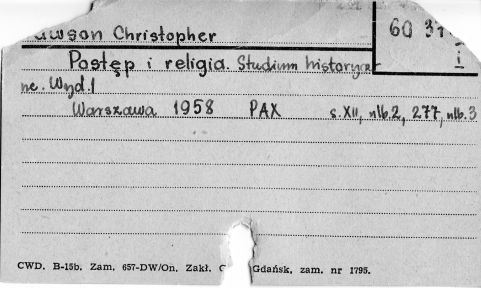 Christopher
60 31
Postęp i religia. Studium historycz
ne. Wyd. I
I
Warszawa 1958 PAX s. XII, nlb. 2, 277, nlb. 3
CWD. B-15b. Zam. 657-DW/On. Zakł. Gdańsk, zam. nr 1795.